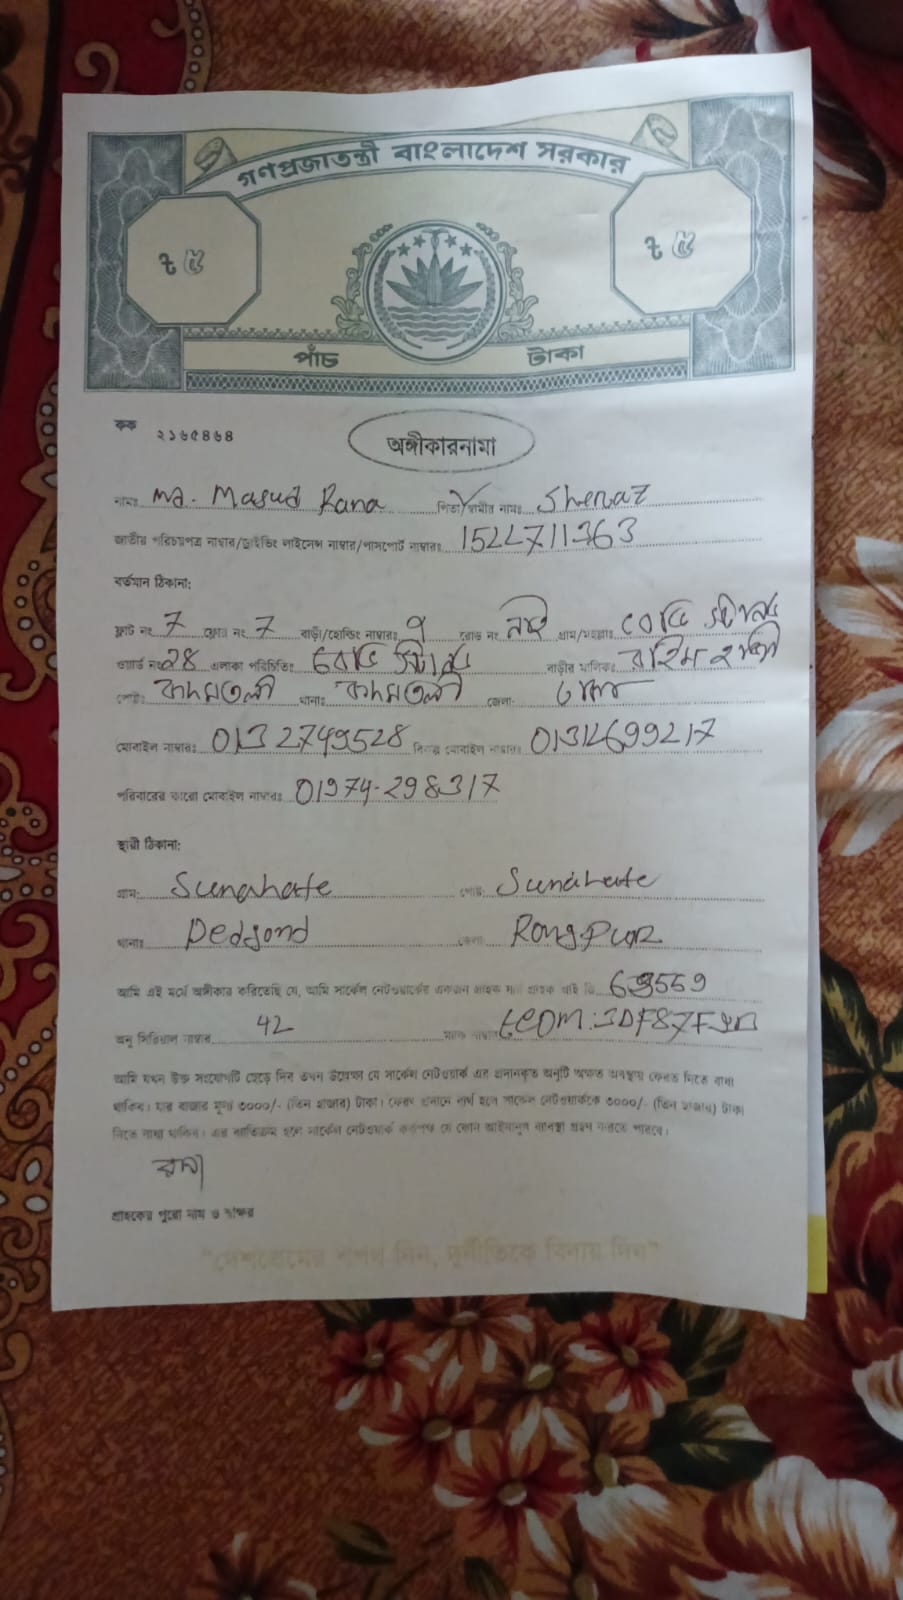 গণপ্রজাতন্ত্রী বাংলাদেশ সরকার
৳ ৫ ৳ ৫
পাঁচ টাকা
কক ২১৬৫৪৬৪
অঙ্গীকারনামা
নামঃ Md. Masud Rana পিতা/স্বামীর নামঃ Sheraz
জাতীয় পরিচয়পত্র নাম্বার/ড্রাইভিং লাইসেন্স নাম্বার/পাসপোর্ট নাম্বারঃ
বর্তমান ঠিকানা:
ফ্লাট নং 7 ফ্লোর নং 7 বাড়ী/হোল্ডিং নাম্বারঃ রোড নং নাই গ্রাম/মহল্লাঃ
ওয়ার্ড নং 28 এলাকা পরিচিতি: বাড়ীর মালিকঃ রহিম হাজী
পোষ্টঃ কদমতলী থানাঃ কদমতলী জেলা: ঢাকা
মোবাইল নাম্বারঃ 0132749528 বিকল্প মোবাইল নাম্বারঃ 01312699217
পরিবারের কারো মোবাইল নাম্বারঃ 01974-298317
স্থায়ী ঠিকানা:
গ্রাম: Sunahate পোষ্ট: Sunahate
থানাঃ জেলা: Rongpur
আমি এই মর্মে অঙ্গীকার করিতেছি যে, আমি সার্কেল নেটওয়ার্কের একজন গ্রাহক যার গ্রাহক আইডি
অনু সিরিয়াল নাম্বার 42 ম্যাক নাম্বার
আমি যখন উক্ত সংযোগটি ছেড়ে দিব তখন উল্লেখ্য যে সার্কেল নেটওয়ার্ক এর প্রদানকৃত অনুটি অক্ষত অবস্থায় ফেরত দিতে বাধ্য
থাকিব। যার বাজার মূল্য ৩০০০/- (তিন হাজার) টাকা। ফেরৎ প্রদানে ব্যর্থ হলে সার্কেল নেটওয়ার্ককে ৩০০০/- (তিন হাজার) টাকা
দিতে বাধ্য থাকিব। এর ব্যতিক্রম হলে সার্কেল নেটওয়ার্ক কর্তৃপক্ষ যে কোন আইনানুগ ব্যবস্থা গ্রহণ করতে পারবে।
গ্রাহকের পুরো নাম ও স্বাক্ষর
"দেশপ্রেমের শপথ নিন, দুর্নীতিকে বিদায় দিন"